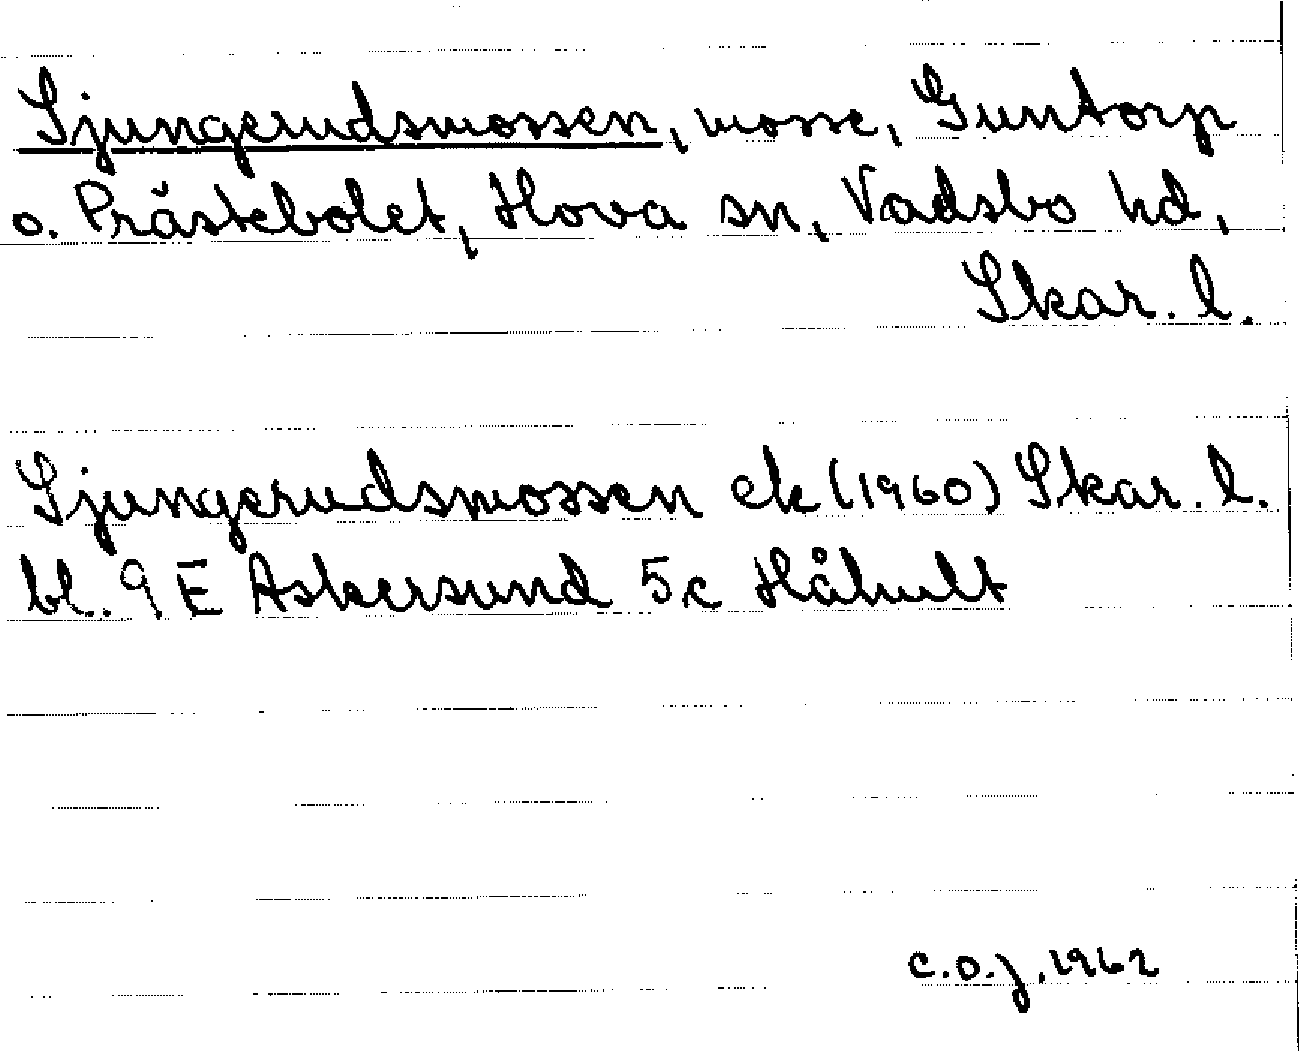 Sjungerudsmossen, mosse, Guntorp
o. Prästebolet, Hova sn, Vadsbo hd,
Skar. l.
Sjungerudsmossen ek (1960) Skar. l.
bl. 9 E Askersund 5c Håhult
C.O.J. 1962